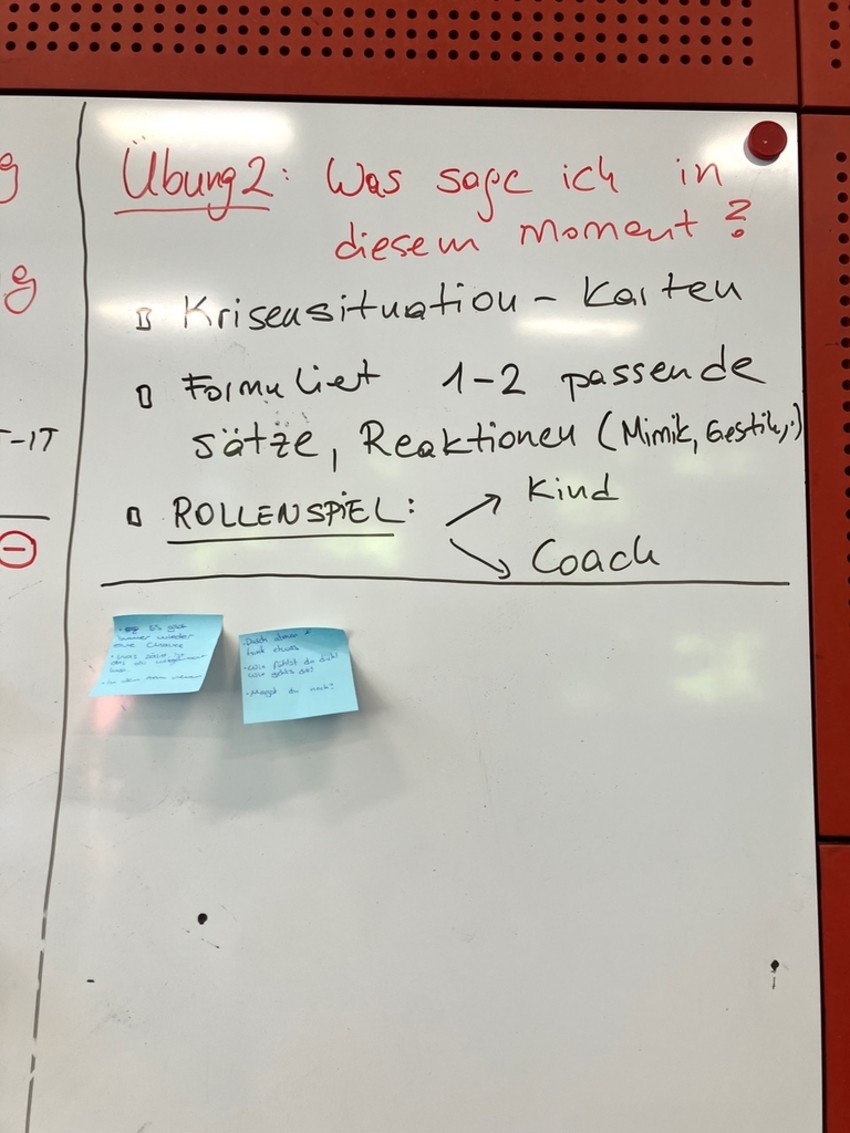 g
g
T-IT
Übung 2: Was sage ich in
diesem Moment?
Krisensituation - Karten
Formuliert 1-2 passende
sätze, Reaktionen (Mimik, Gestik,.)
ROLLENSPIEL:
Kind
Coach
Es gibt
immer wieder
eine Chance
- Durch atmen &
- Wie fühlst du dich?
Wie gehts dir?
- Magst du noch?